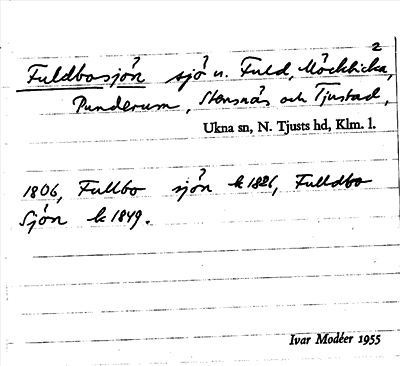 2
Fuldbosjön sjö u. Fuld, Möckhicka,
Punderum, Stensnäs och Tjustad,
Ukna sn, N. Tjusts hd, Klm. l.
1806, Fullbo sjön k 1826, Fulldbo
Sjön k 1849.
Ivar Modéer 1955